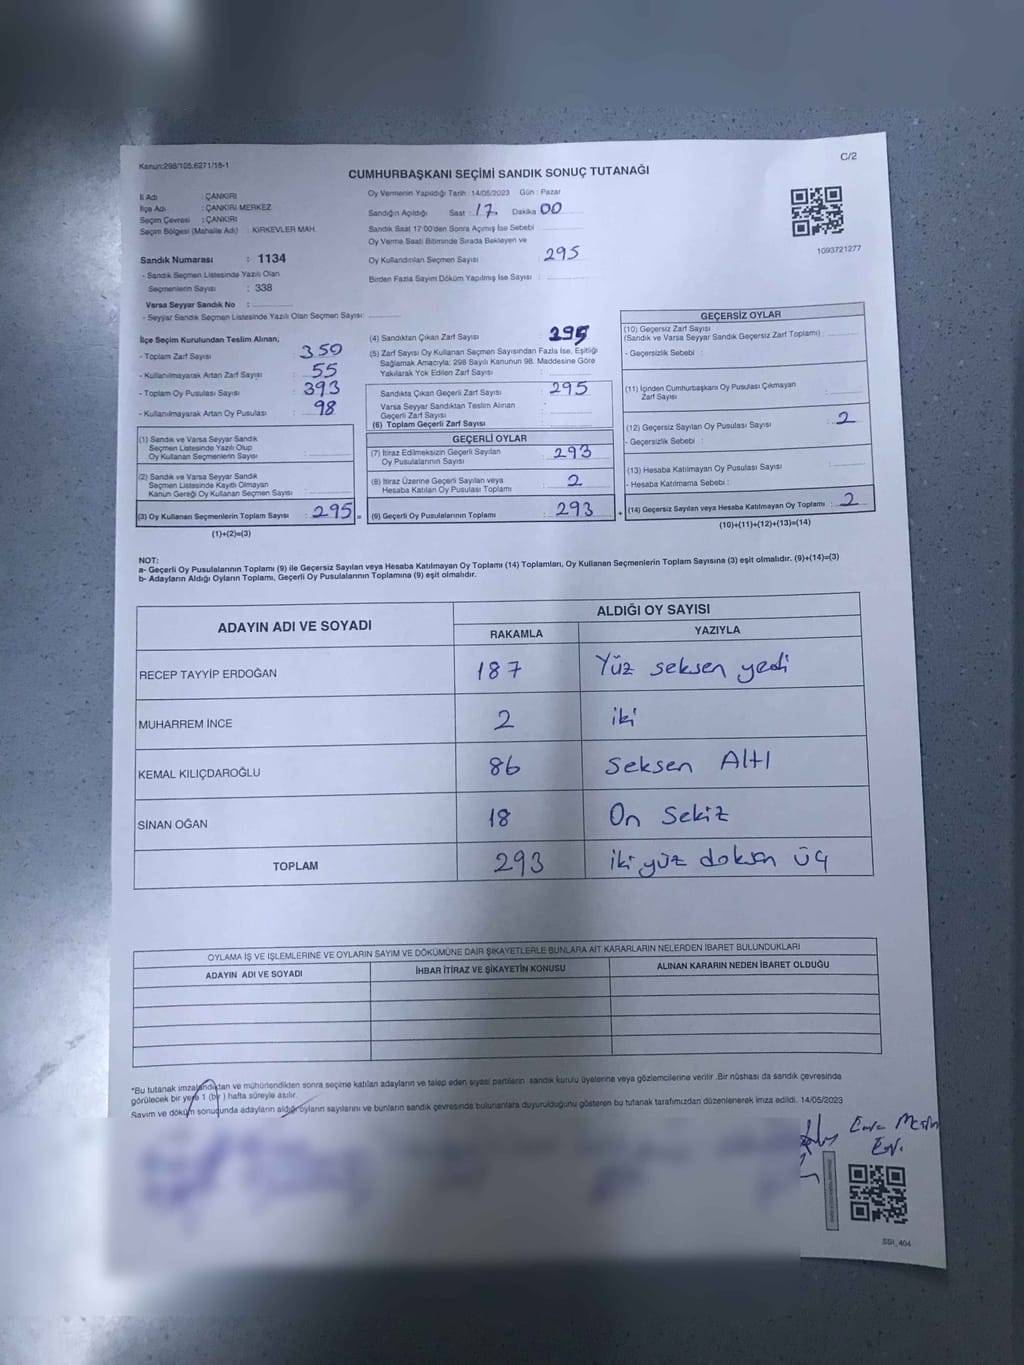 Kanun:298/105;6271/18-1
C/2
CUMHURBAŞKANI SEÇİMİ SANDIK SONUÇ TUTANAĞI
İl Adı : ÇANKIRI
İlçe Adı : ÇANKIRI MERKEZ
Seçim Çevresi : ÇANKIRI
Seçim Bölgesi (Mahalle Adı) : KIRKEVLER MAH.
Sandık Numarası : 1134
- Sandık Seçmen Listesinde Yazılı Olan
Seçmenlerin Sayısı : 338
Varsa Seyyar Sandık No :
- Seyyar Sandık Seçmen Listesinde Yazılı Olan Seçmen Sayısı:
Oy Vermenin Yapıldığı Tarih : 14/05/2023 Gün : Pazar
Sandığın Açıldığı Saat : 17 Dakika 00
Sandık Saat 17:00'den Sonra Açımış İse Sebebi :
Oy Verme Saati Bitiminde Sırada Bekleyen ve
Oy Kullandırılan Seçmen Sayısı : 295
Birden Fazla Sayım Döküm Yapılmış İse Sayısı :
1093721277
İlçe Seçim Kurulundan Teslim Alınan,
- Toplam Zarf Sayısı : 350
- Kullanılmayarak Artan Zarf Sayısı : 55
- Toplam Oy Pusulası Sayısı : 393
- Kullanılmayarak Artan Oy Pusulası : 98
(1) Sandık ve Varsa Seyyar Sandık
Seçmen Listesinde Yazılı Olup
Oy Kullanan Seçmenlerin Sayısı :
(2) Sandık ve Varsa Seyyar Sandık
Seçmen Listesinde Kayıtlı Olmayan
Kanun Gereği Oy Kullanan Seçmen Sayısı :
(3) Oy Kullanan Seçmenlerin Toplam Sayısı : 295 =
(1)+(2)=(3)
(4) Sandıktan Çıkan Zarf Sayısı : 295
(5) Zarf Sayısı Oy Kullanan Seçmen Sayısından Fazla İse, Eşitliği
Sağlamak Amacıyla; 298 Sayılı Kanunun 98. Maddesine Göre
Yakılarak Yok Edilen Zarf Sayısı :
Sandıkta Çıkan Geçerli Zarf Sayısı : 295
Varsa Seyyar Sandıktan Teslim Alınan
Geçerli Zarf Sayısı :
(6) Toplam Geçerli Zarf Sayısı :
GEÇERLİ OYLAR
(7) İtiraz Edilmeksizin Geçerli Sayılan
Oy Pusulalarının Sayısı : 293
(8) İtiraz Üzerine Geçerli Sayılan veya
Hesaba Katılan Oy Pusulası Toplamı : 2
(9) Geçerli Oy Pusulalarının Toplamı : 293 +
GEÇERSİZ OYLAR
(10) Geçersiz Zarf Sayısı
(Sandık ve Varsa Seyyar Sandık Geçersiz Zarf Toplamı) :
- Geçersizlik Sebebi :
(11) İçinden Cumhurbaşkanı Oy Pusulası Çıkmayan
Zarf Sayısı :
(12) Geçersiz Sayılan Oy Pusulası Sayısı : 2
- Geçersizlik Sebebi :
(13) Hesaba Katılmayan Oy Pusulası Sayısı :
- Hesaba Katılmama Sebebi :
(14) Geçersiz Sayılan veya Hesaba Katılmayan Oy Toplamı : 2
(10)+(11)+(12)+(13)=(14)
NOT:
a- Geçerli Oy Pusulalarının Toplamı (9) ile Geçersiz Sayılan veya Hesaba Katılmayan Oy Toplamı (14) Toplamları, Oy Kullanan Seçmenlerin Toplam Sayısına (3) eşit olmalıdır. (9)+(14)=(3)
b- Adayların Aldığı Oyların Toplamı, Geçerli Oy Pusulalarının Toplamına (9) eşit olmalıdır.
ADAYIN ADI VE SOYADI
ALDIĞI OY SAYISI
RAKAMLA YAZIYLA
RECEP TAYYİP ERDOĞAN 187 Yüz seksen yedi
MUHARREM İNCE 2 iki
KEMAL KILIÇDAROĞLU 86 Seksen Altı
SİNAN OĞAN 18 On Sekiz
TOPLAM 293 iki yüz doksan üç
OYLAMA İŞ VE İŞLEMLERİNE VE OYLARIN SAYIM VE DÖKÜMÜNE DAİR ŞİKAYETLERLE BUNLARA AİT KARARLARIN NELERDEN İBARET BULUNDUKLARI
ADAYIN ADI VE SOYADI İHBAR İTİRAZ VE ŞİKAYETİN KONUSU ALINAN KARARIN NEDEN İBARET OLDUĞU
*Bu tutanak imzalandıktan ve mühürlendikten sonra seçime katılan adayların ve talep eden siyasi partilerin sandık kurulu üyelerine veya gözlemcilerine verilir .Bir nüshası da sandık çevresinde
görülecek bir yere 1 (bir ) hafta süreyle asılır.
Sayım ve döküm sonucunda adayların aldığı oyların sayılarını ve bunların sandık çevresinde bulunanlara duyurulduğunu gösteren bu tutanak tarafımızdan düzenlenerek imza edildi. 14/05/2023